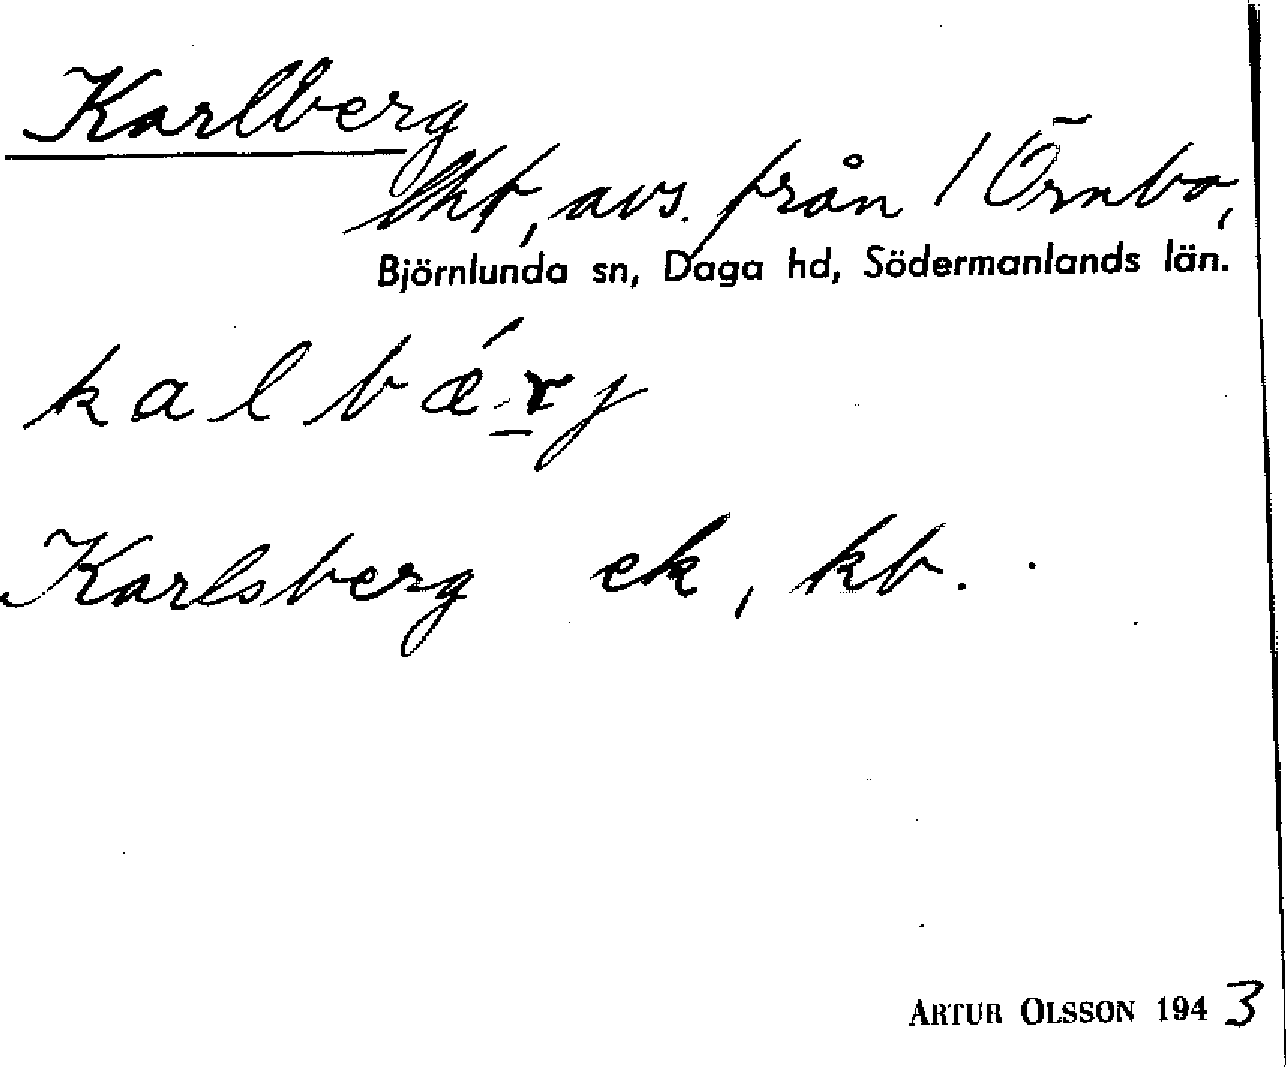 Karlberg
lht, avs. från 1 Örnbo,
Björnlunda sn, Daga hd, Södermanlands län.
kalbǽrj
Karlsberg ek, kb.
ARTUR OLSSON 1943